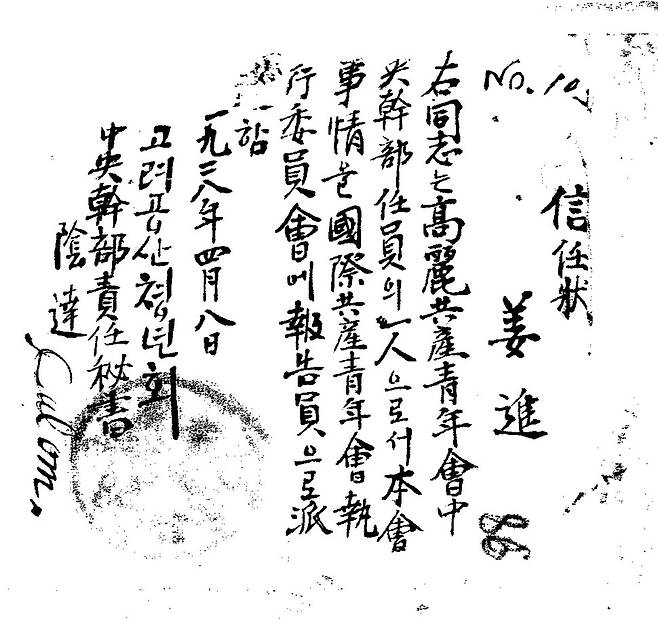 No. 10.
信任狀
姜進
86
右同志는高麗共產青年會中
央幹部任員의一人으로서本會
事情을國際共產青年會執
行委員會에報告員으로派
함
一九二八年四月八日
고려공산청년회
中央幹部責任秘書
陰達